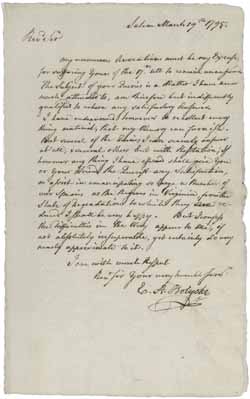 Salem March 19th 1795.
Revd Sir
my numerous Avocations must be my Excuse
for suffering Yours of the 17. ult to remain unanswered.
The Subject of your Queries is a Matter I have not
much attended to, am therefore but indifferently
qualified to return any satisfactory Answers.
I have endeavored however to recollect every
thing material, that my memory can furnish.
But several of the things I can scarcely answer
at all, several others but with hesitation. If
however any thing I have offered should give You
or Your Friend the smallest any Satisfaction,
or assist in emancipating so large a Number of
our Species as the Negroes in Virginia from the
State of Degradation to which they are re-
duced I shall be very happy. But I confess
the difficulties in the Way appear to me, if
not absolutely insuperable, yet certainly to very
nearly approximate to it.
I am with much Respect
Revd Sir Your very humble Servt
E. A. Holyoke